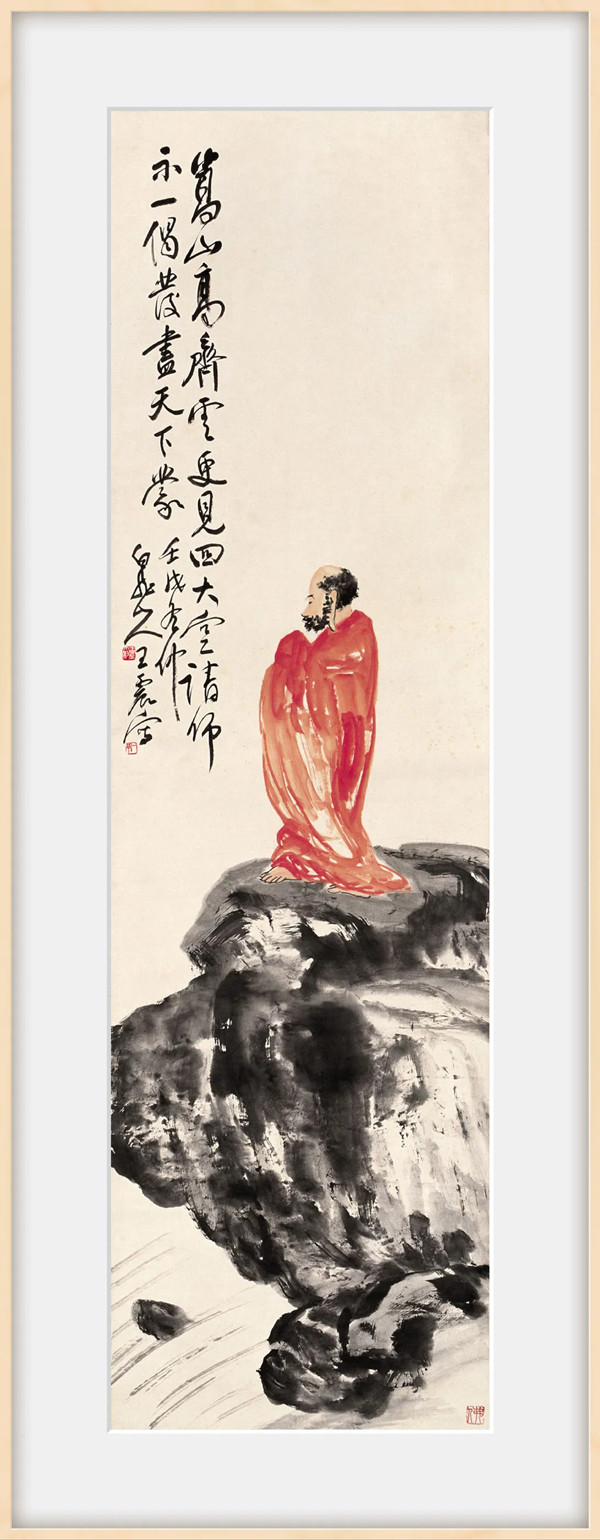 嵩山高齊雲更見四大空請師
示一偈發盡天下蒙 壬戌冬仲
白龍山人王震寫